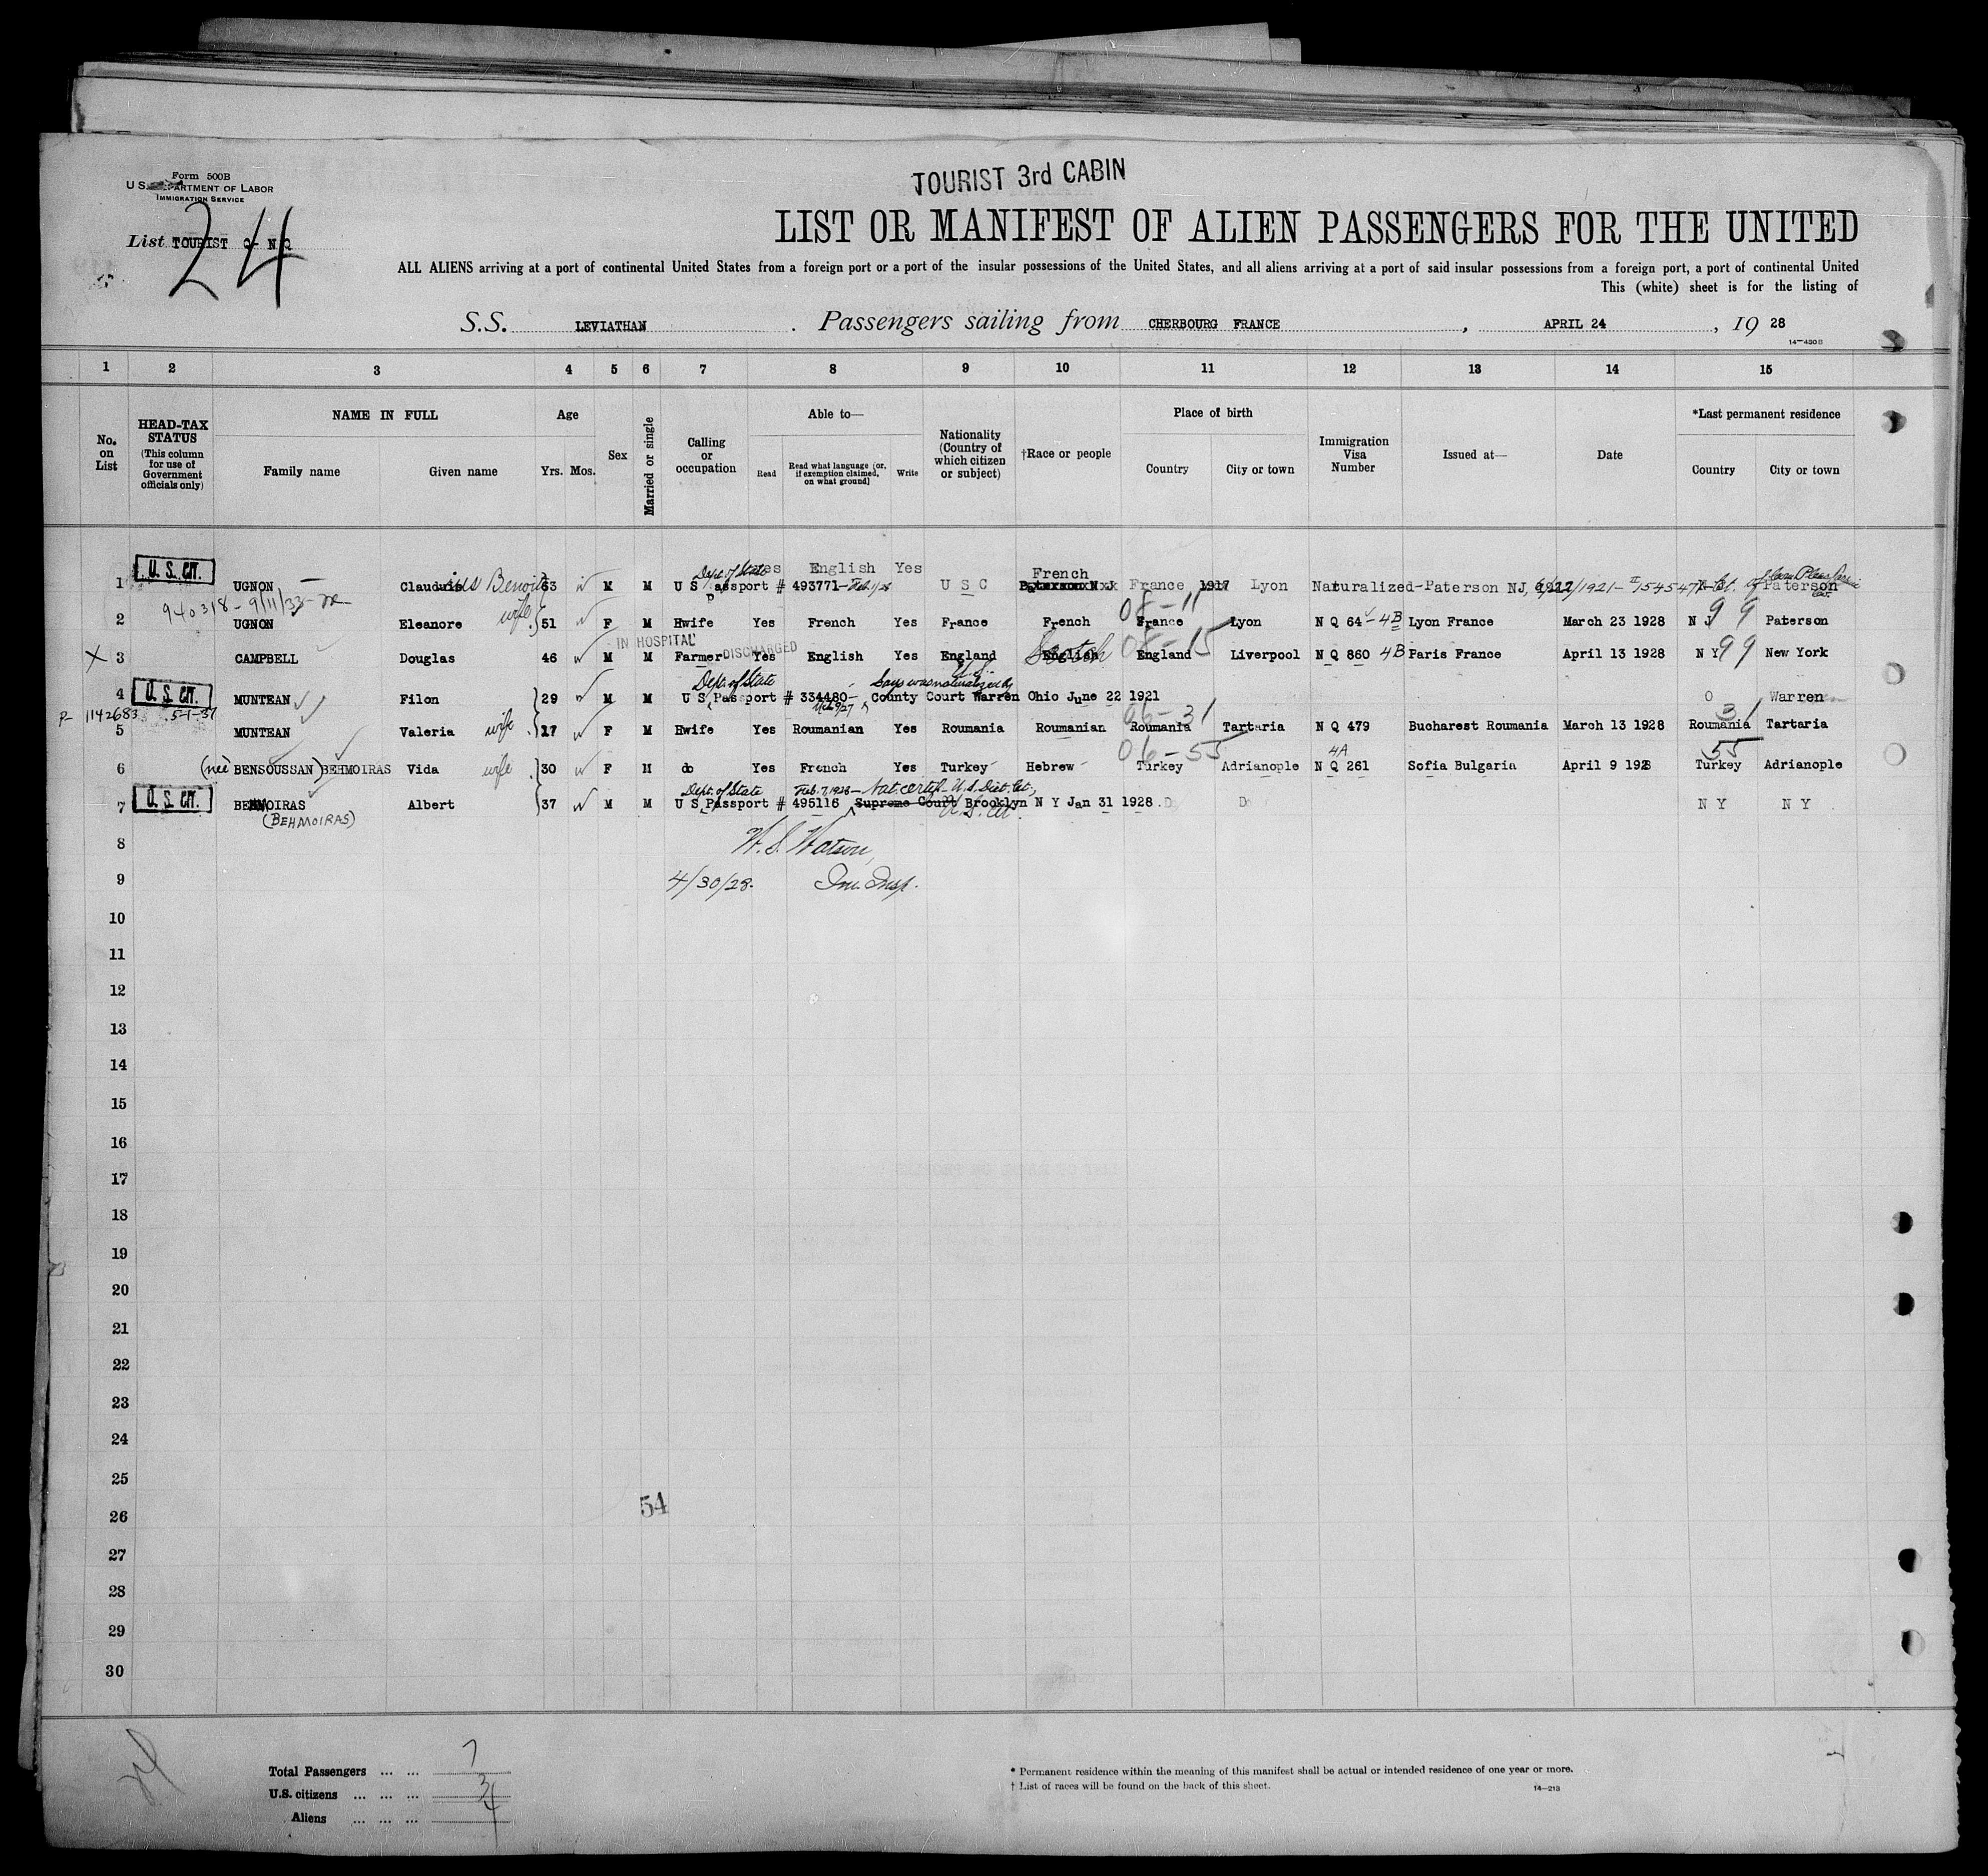 TOURIST 3rd CABIN
Form 500B
U S DEPARTMENT OF LABOR
IMMIGRATION SERVICE
List TOURIST Q- N Q
24
LIST OR MANIFEST OF ALIEN PASSENGERS FOR THE UNITED
ALL ALIENS arriving at a port of continental United States from a foreign port or a port of the insular possessions of the United States, and all aliens arriving at a port of said insular possessions from a foreign port, a port of continental United
This (white) sheet is for the listing of
S.S. LEVIATHAN . Passengers sailing from CHERBOURG FRANCE , APRIL 24 , 19 28
14-430B
1 2 3 4 5 6 7 8 9 10 11 12 13 14 15
No. on List
HEAD-TAX STATUS
(This column for use of Government officials only)
NAME IN FULL
Family name Given name
Age
Yrs. Mos.
Sex
Married or single
Calling or occupation
Able to—
Read
Read what language [or, if exemption claimed, on what ground]
Write
Nationality (Country of which citizen or subject)
†Race or people
Place of birth
Country City or town
Immigration Visa Number
Issued at—
Date
*Last permanent residence
Country City or town
U. S. CIT.
Dept. of State Yes English Yes French
1 UGNON Claudius Benoit 63 M M U S Passport # 493771- U S C France 1917 Lyon Naturalized-Paterson NJ, /1921- 1545471- Paterson
940318 - 9/11/33- 08-11 99
2 UGNON Eleanore wife 51 F M Hwife Yes French Yes France French France Lyon N Q 64 - 4B Lyon France March 23 1928 N J Paterson
IN HOSPITAL DISCHARGED
X 3 CAMPBELL Douglas 46 M M Farmer Yes English Yes England English Scotch 08-15 England Liverpool N Q 860 4B Paris France April 13 1928 N Y 99 New York
U. S. CIT.
Dept. of State Says was naturalized by
4 MUNTEAN Filon 29 M M U S Passport # 334480- County Court Warren Ohio June 22 1921 O Warren
P- 1142683 5-1-37 06-31 31
5 MUNTEAN Valeria wife 17 F M Hwife Yes Roumanian Yes Roumania Roumanian Roumania Tartaria N Q 479 Bucharest Roumania March 13 1928 Roumania Tartaria
06-55 4A 55
6 (née BENSOUSSAN) BEHMOIRAS Vida wife 30 F M do Yes French Yes Turkey Hebrew Turkey Adrianople N Q 261 Sofia Bulgaria April 9 1928 Turkey Adrianople
U. S. CIT.
Dept. of State Feb. 7, 1928 - Nat. certif- U.S. Dist. Ct.,
7 BENMOIRAS Albert 37 M M U S Passport # 495116 Supreme Court Brooklyn N Y Jan 31 1928. Do Do N Y N Y
(BEHMOIRAS) U.S. Cit.
8 W. S. Watson,
9 4/30/28. Im. Insp.
10
11
12
13
14
15
16
17
18
19
20
21
22
23
24
25
26 54
27
28
29
30
Total Passengers ... ... 7
U.S. citizens ... ... ... 3
Aliens ... ... ... 4
* Permanent residence within the meaning of this manifest shall be actual or intended residence of one year or more.
† List of races will be found on the back of this sheet.
14-213